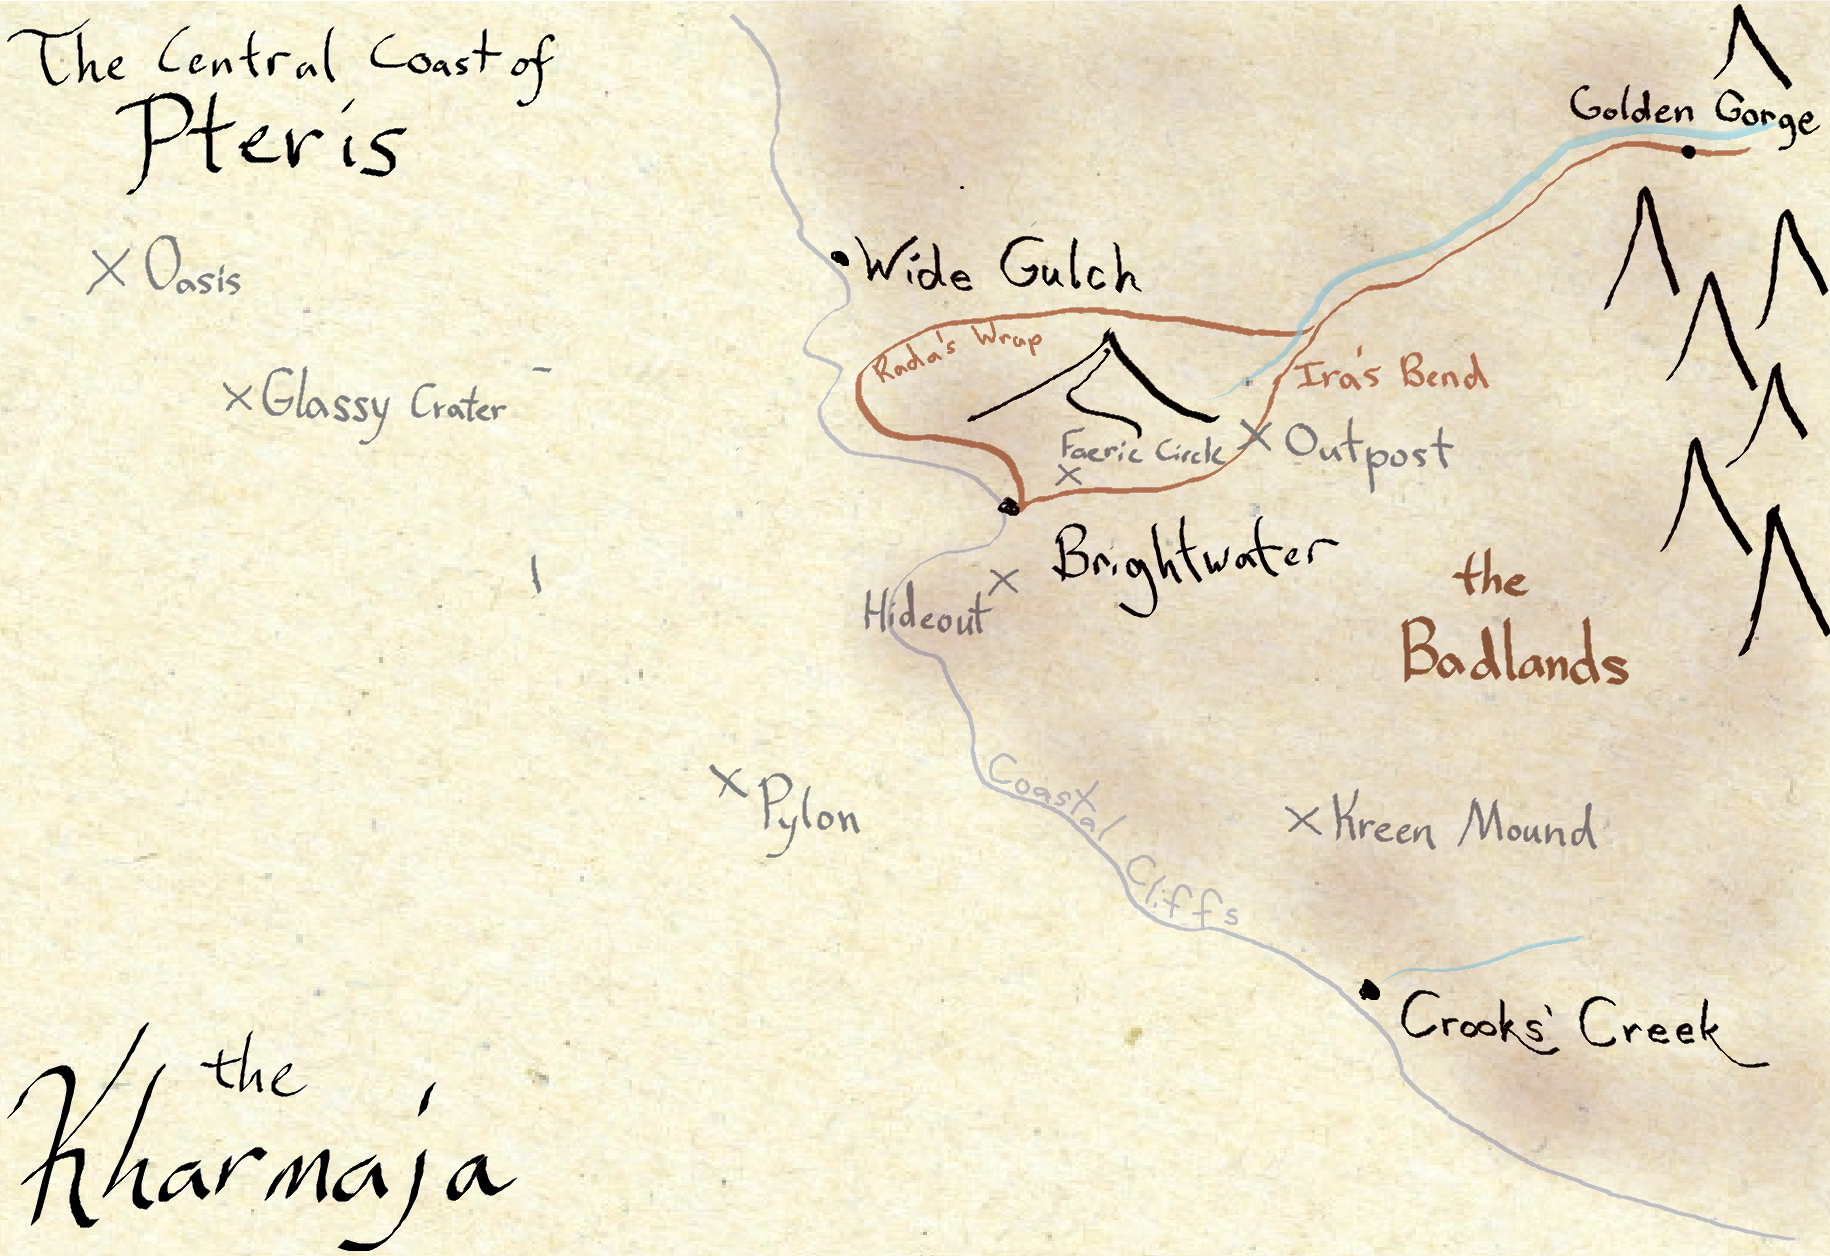 The Central Coast of
Pteris
Golden Gorge
Oasis
Wide Gulch
Rada's Wrap
Ira's Bend
Glassy Crater
Faerie Circle
Outpost
Brightwater
Hideout
the
Badlands
Pylon
Coastal
Cliffs
Kreen Mound
Crooks' Creek
the
Kharmaja